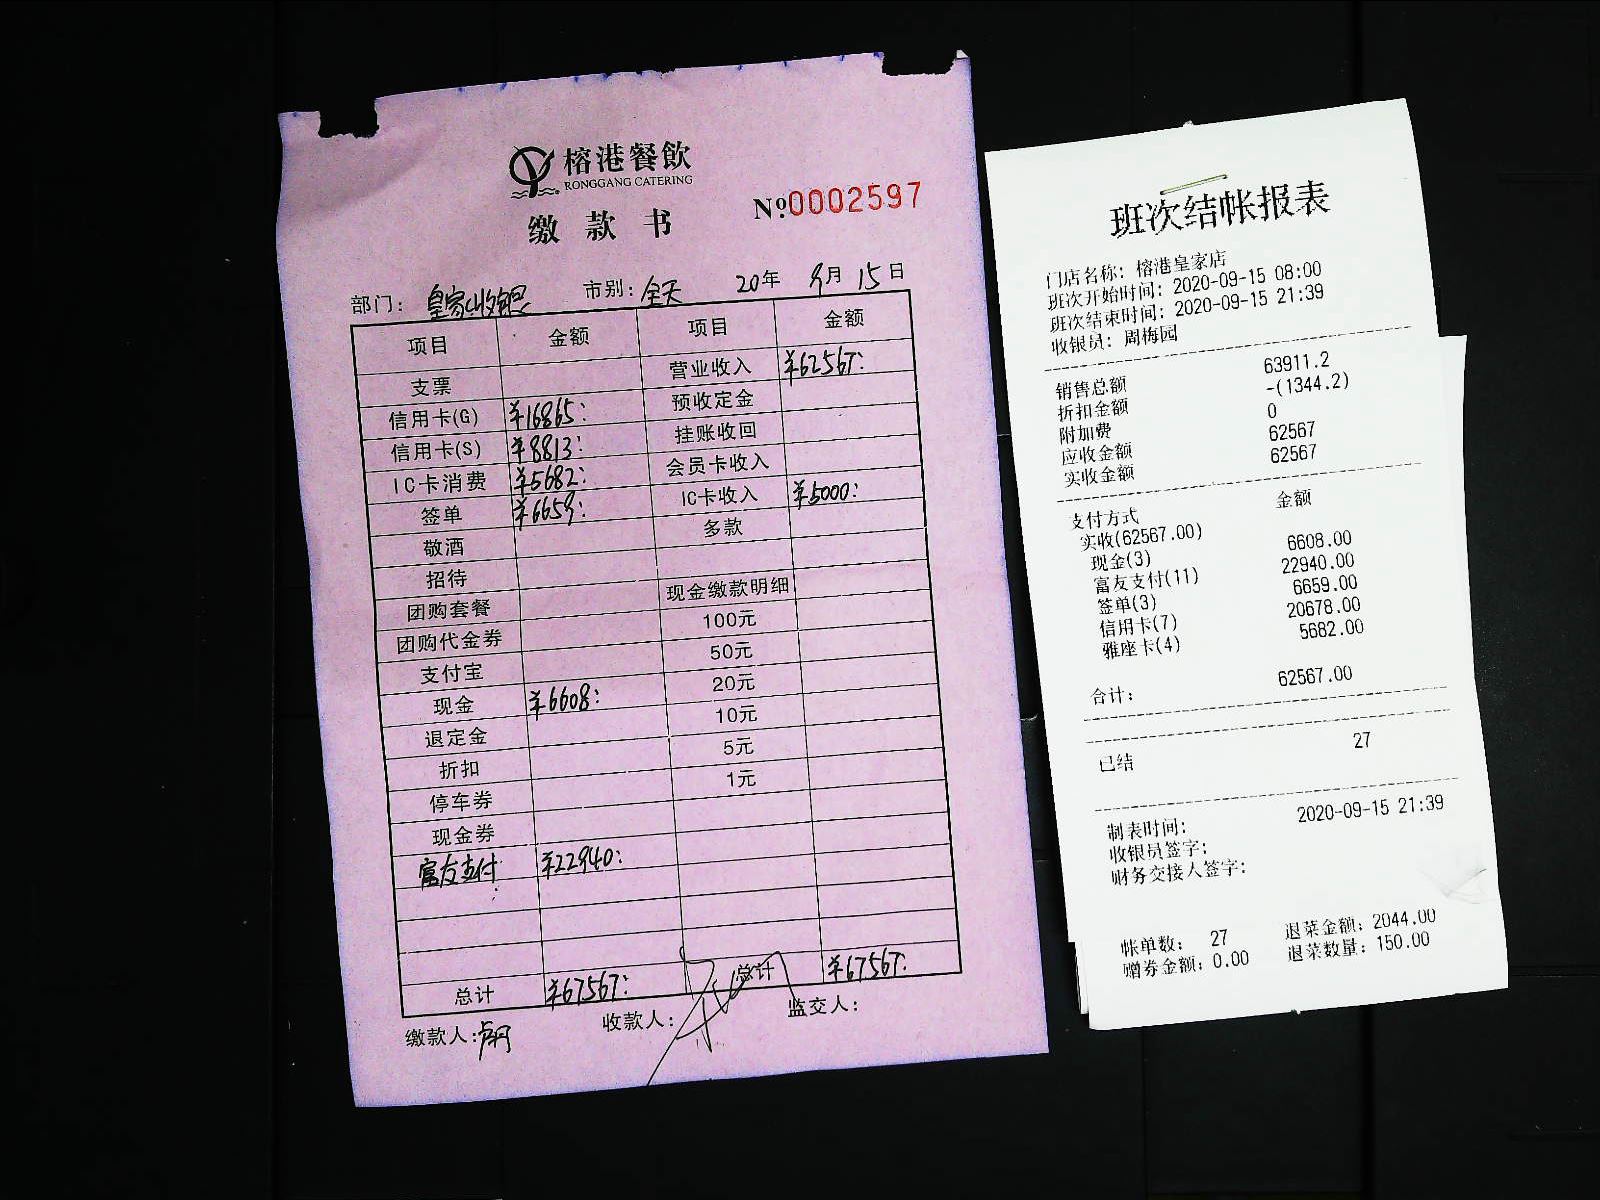 榕港餐飲
RONGGANG CATERING
缴款书
№0002597
部门: 皇家收银 市别: 全天 20年 9月 15日
项目 金额 项目 金额
支票 营业收入 ¥62567:
信用卡(G) ¥16865: 预收定金
信用卡(S) ¥8813: 挂账收回
IC卡消费 ¥5682: 会员卡收入
签单 ¥6659: IC卡收入 ¥5000:
敬酒 多款
招待
团购套餐 现金缴款明细
团购代金券 100元
支付宝 50元
现金 ¥6608: 20元
退定金 10元
折扣 5元
停车券 1元
现金券
富友支付 ¥22940:
总计 ¥67567: 总计 ¥67567:
缴款人: 收款人: 监交人:
班次结帐报表
门店名称: 榕港皇家店
班次开始时间: 2020-09-15 08:00
班次结束时间: 2020-09-15 21:39
收银员: 周梅园
销售总额 63911.2
折扣金额 -(1344.2)
附加费 0
应收金额 62567
实收金额 62567
支付方式 金额
实收(62567.00)
现金(3) 6608.00
富友支付(11) 22940.00
签单(3) 6659.00
信用卡(7) 20678.00
雅座卡(4) 5682.00
合计: 62567.00
已结 27
制表时间: 2020-09-15 21:39
收银员签字:
财务交接人签字:
帐单数: 27 退菜金额: 2044.00
赠券金额: 0.00 退菜数量: 150.00